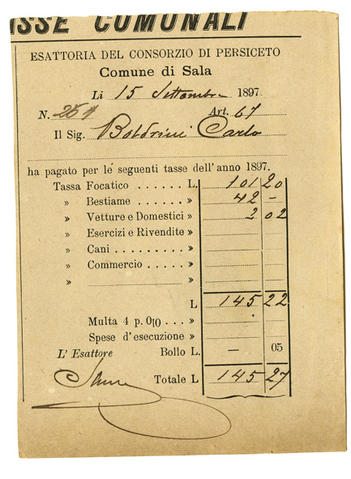 TASSE COMUNALI
ESATTORIA DEL CONSORZIO DI PERSICETO
Comune di Sala
Li 15 Settembre 1897.
N. 251 Art. 67
Il Sig. Boldrini Carlo
ha pagato per le seguenti tasse dell'anno 1897.
Tassa Focatico . . . . . . L. 101 20
» Bestiame . . . . . » 42 -
» Vetture e Domestici » 2 02
» Esercizi e Rivendite »
» Cani . . . . . . . . »
» Commercio . . . . . »
» »
L 145 22
Multa 4 p. 0|0 . . . »
Spese d'esecuzione »
L'Esattore Bollo L. — 05
Totale L 145 27